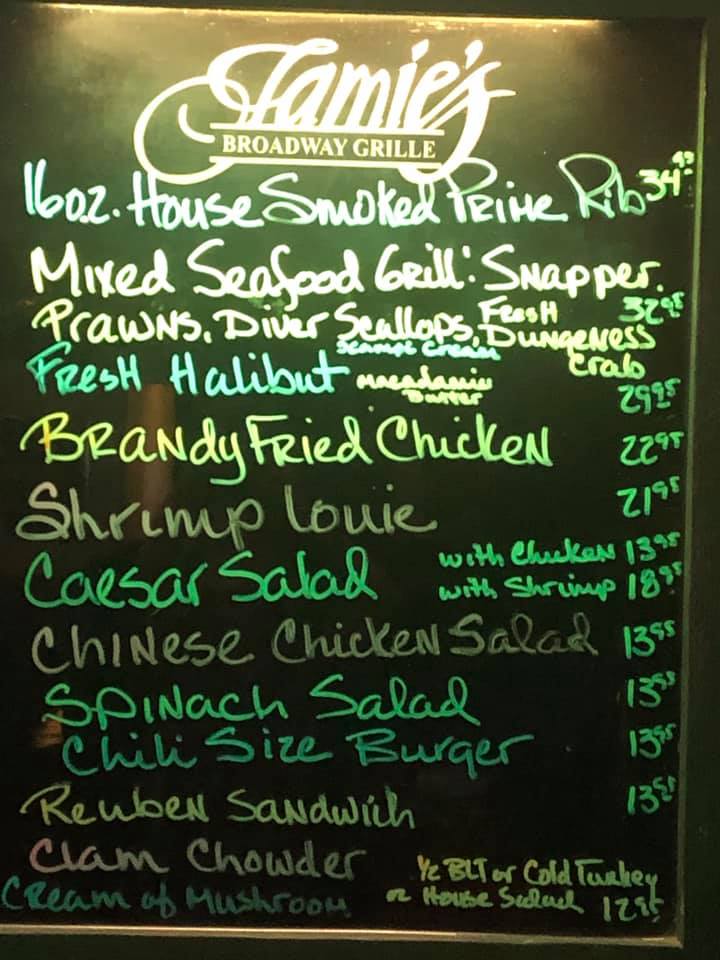 Jamie's
BROADWAY GRILLE
16oz. House Smoked Prime Rib 34.95
Mixed Seafood Grill: Snapper.
Prawns, Diver Scallops, Fresh Dungeness Crab 32.95
Fresh Halibut Macadamia Butter 29.95
Brandy Fried Chicken 22.95
Shrimp Louie 21.95
Caesar Salad with Chicken 13.95
with Shrimp 18.95
Chinese Chicken Salad 13.95
Spinach Salad 13.95
Chili Size Burger 13.95
Reuben Sandwich 13.95
Clam Chowder 1/2 BLT or Cold Turkey
Cream of Mushroom or House Salad 12.95